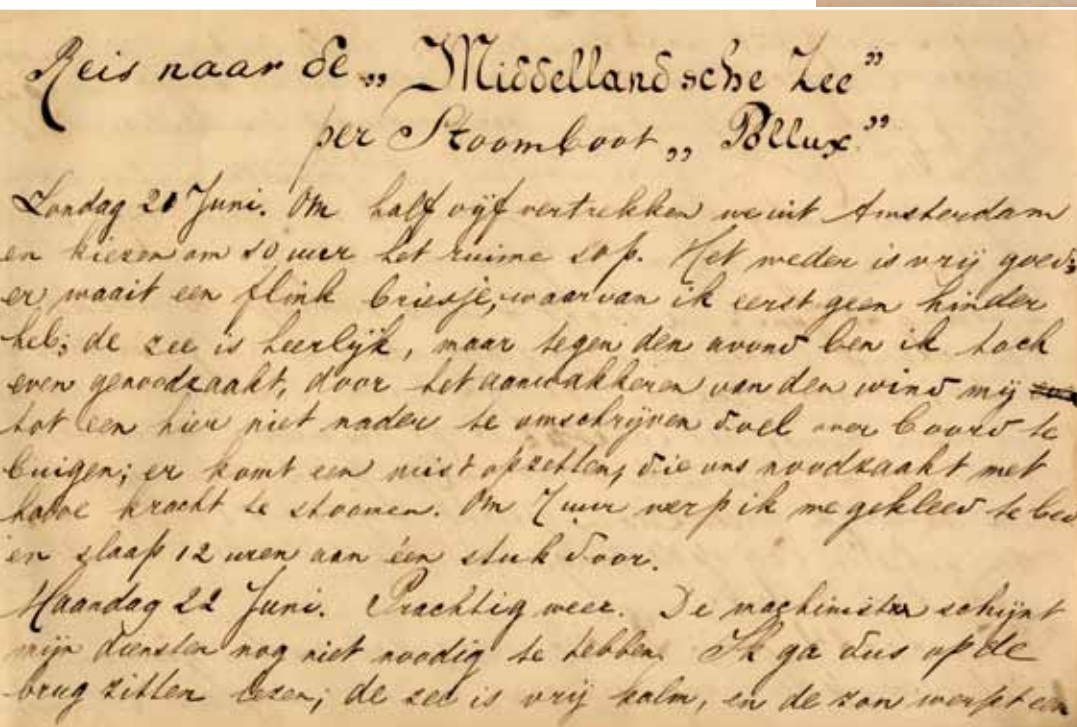 Reis naar de „Middellandsche Zee”
per Stoomboot „Pollux”
Zondag 21 Juni. Om half vijf vertrekken we uit Amsterdam
en kiezen om 10 uur het ruime sop. Het weder is vrij goed;
er waait een flink briesje, waarvan ik eerst geen hinder
heb; de zee is heerlijk, maar tegen den avond ben ik toch
even genoodzaakt, door het aanwakkeren van den wind mij
tot een hier niet nader te omschrijven doel over boord te
buigen; er komt een mist opzetten, die ons noodzaakt met
halve kracht te stoomen. Om 7 uur werp ik me gekleed te bed
en slaap 12 uren aan één stuk door.
Maandag 22 Juni. Prachtig weer. De machinist schijnt
mijn diensten nog niet noodig te hebben. Ik ga dus op de
brug zitten lezen; de zee is vrij kalm, en de zon werpt een